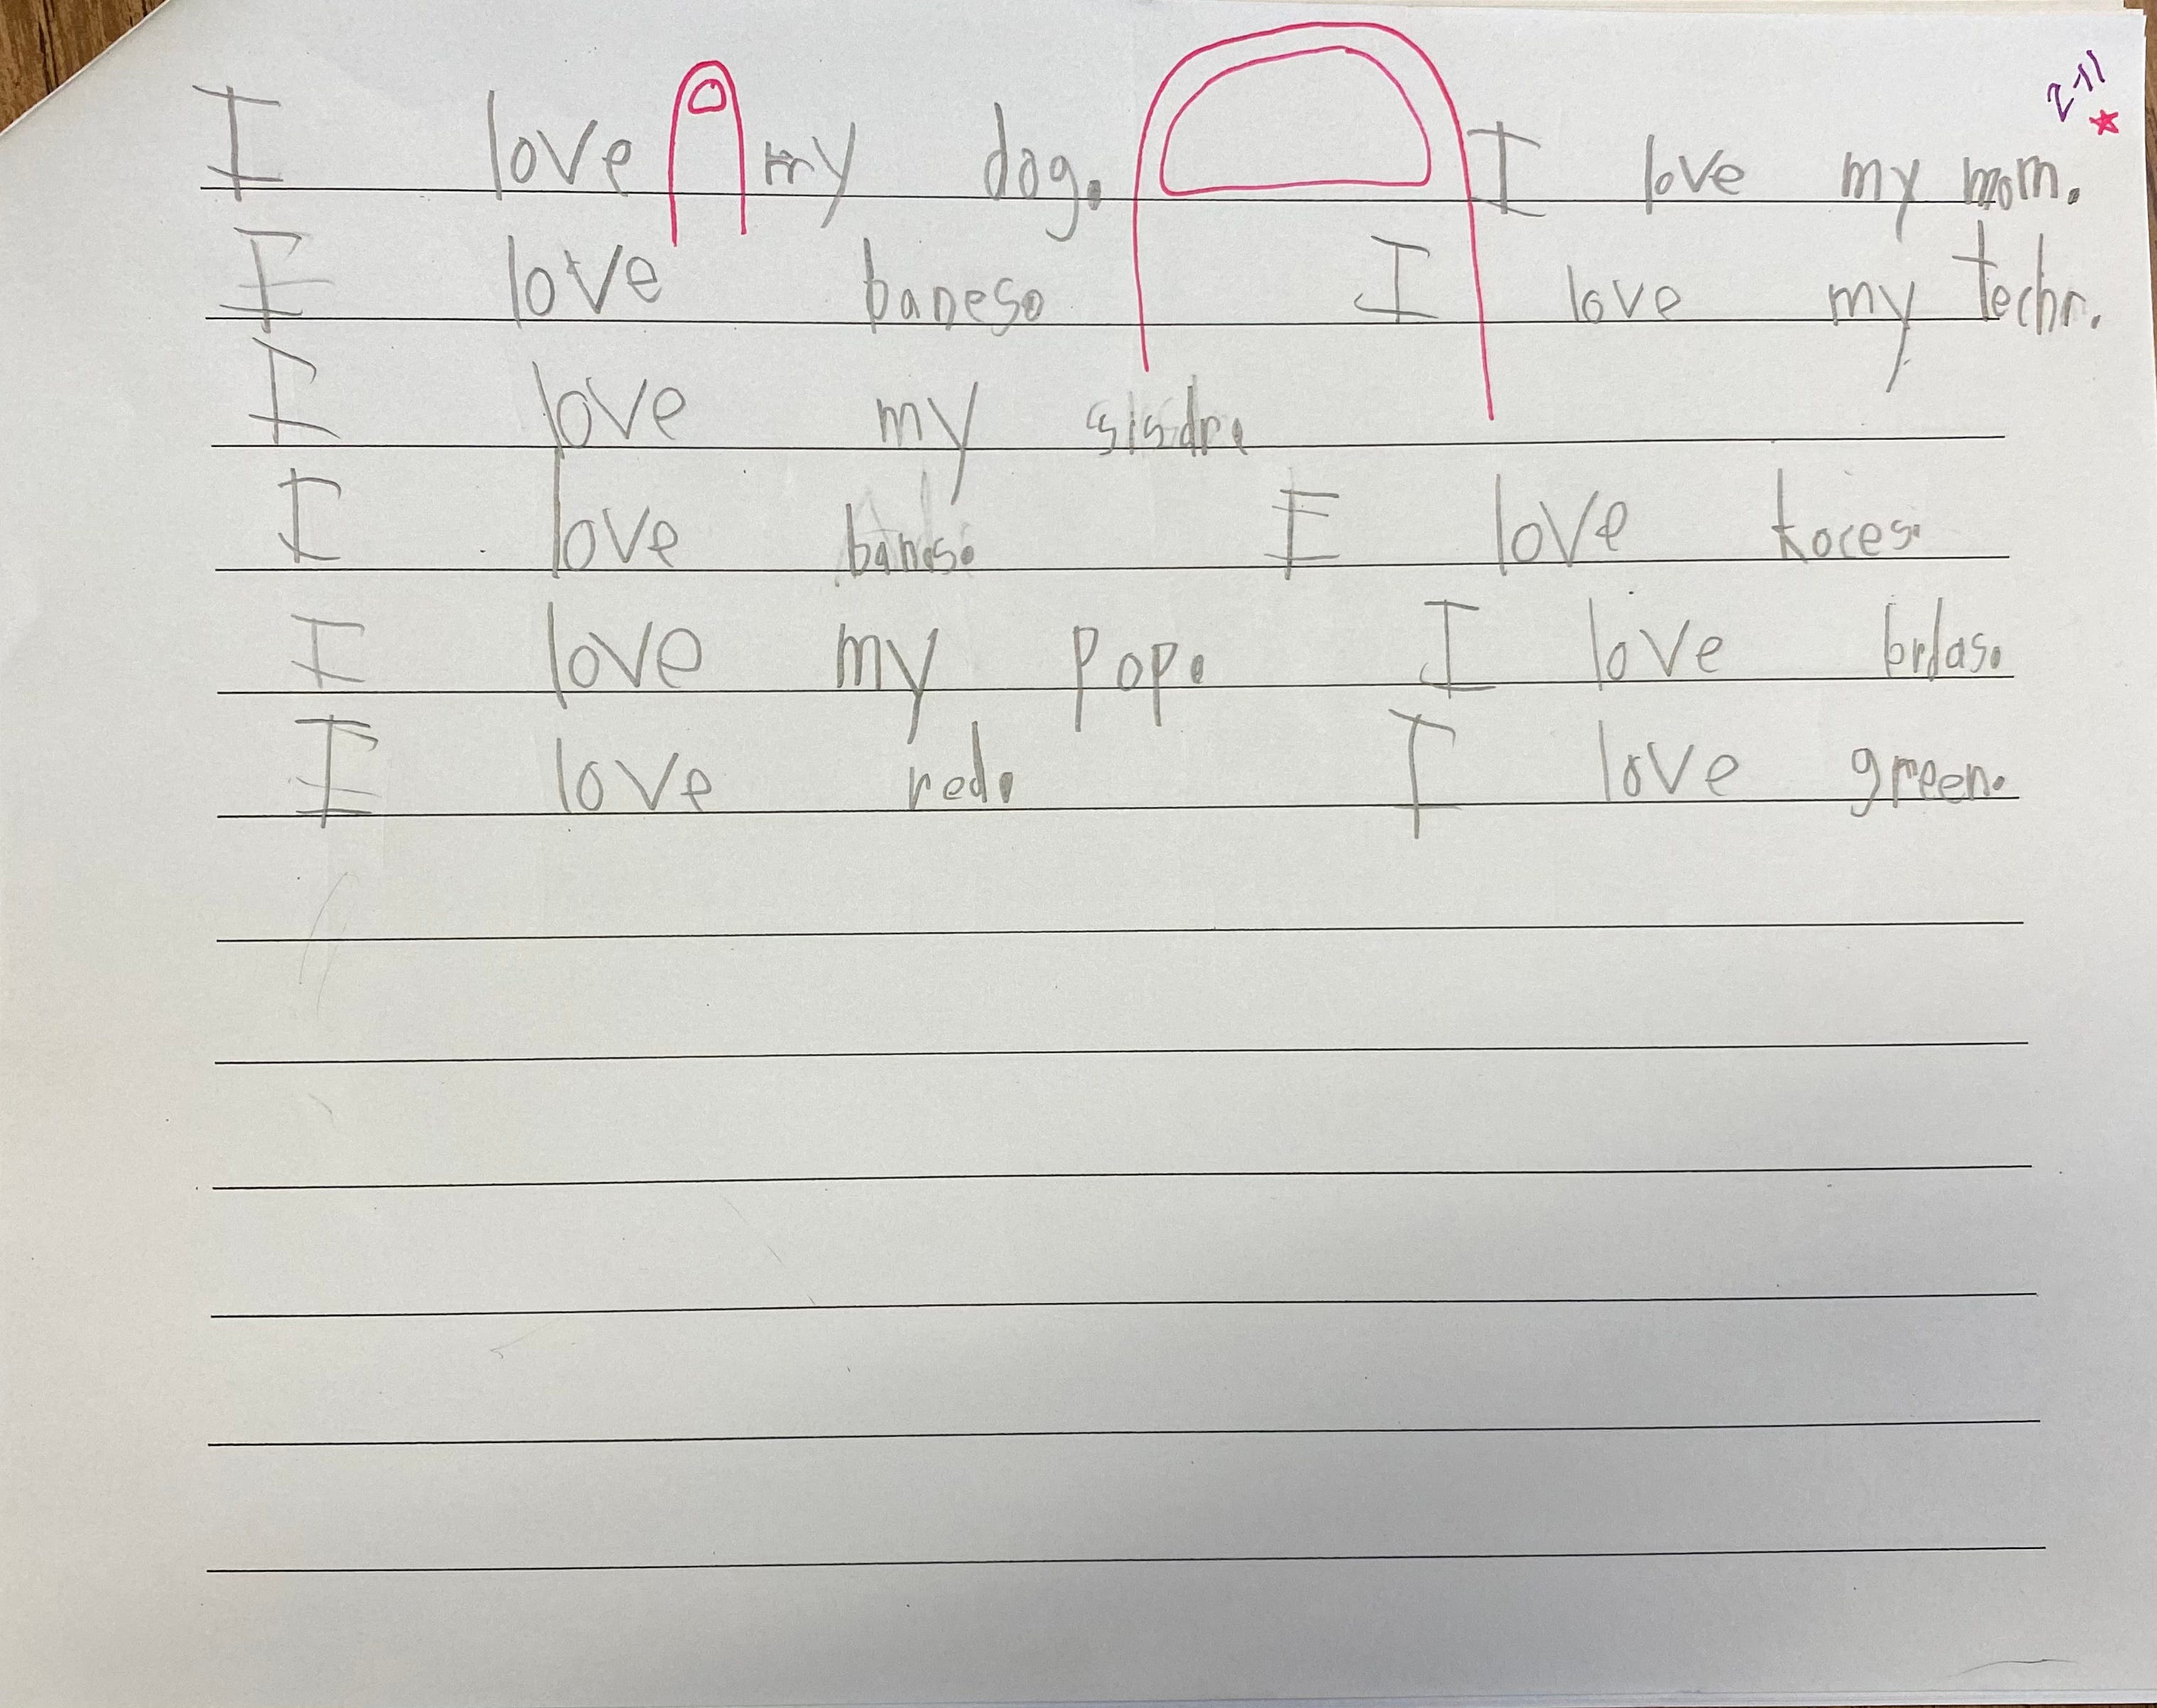 2-11
I love my dog. I love my mom.
I love banes. I love my techr.
I love my sisdr.
I love banes. I love koces.
I love my pop. I love brdas.
I love red. I love green.